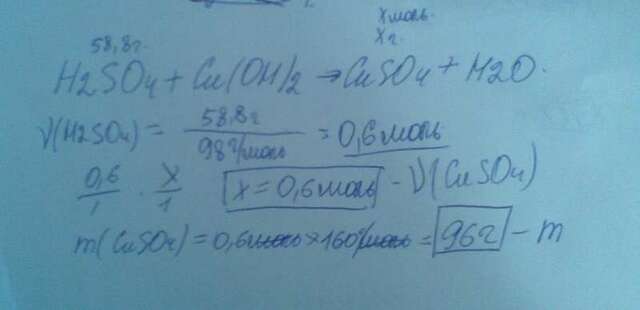 x моль.
58,8г. x г.
H2SO4 + Cu(OH)2 → CuSO4 + H2O.
ν(H2SO4) = 58,8г / 98 г/моль = 0,6 моль
0,6/1 · x/1 x = 0,6 моль - ν(CuSO4)
m(CuSO4) = 0,6 моль * 160 г/моль = 96 г - m